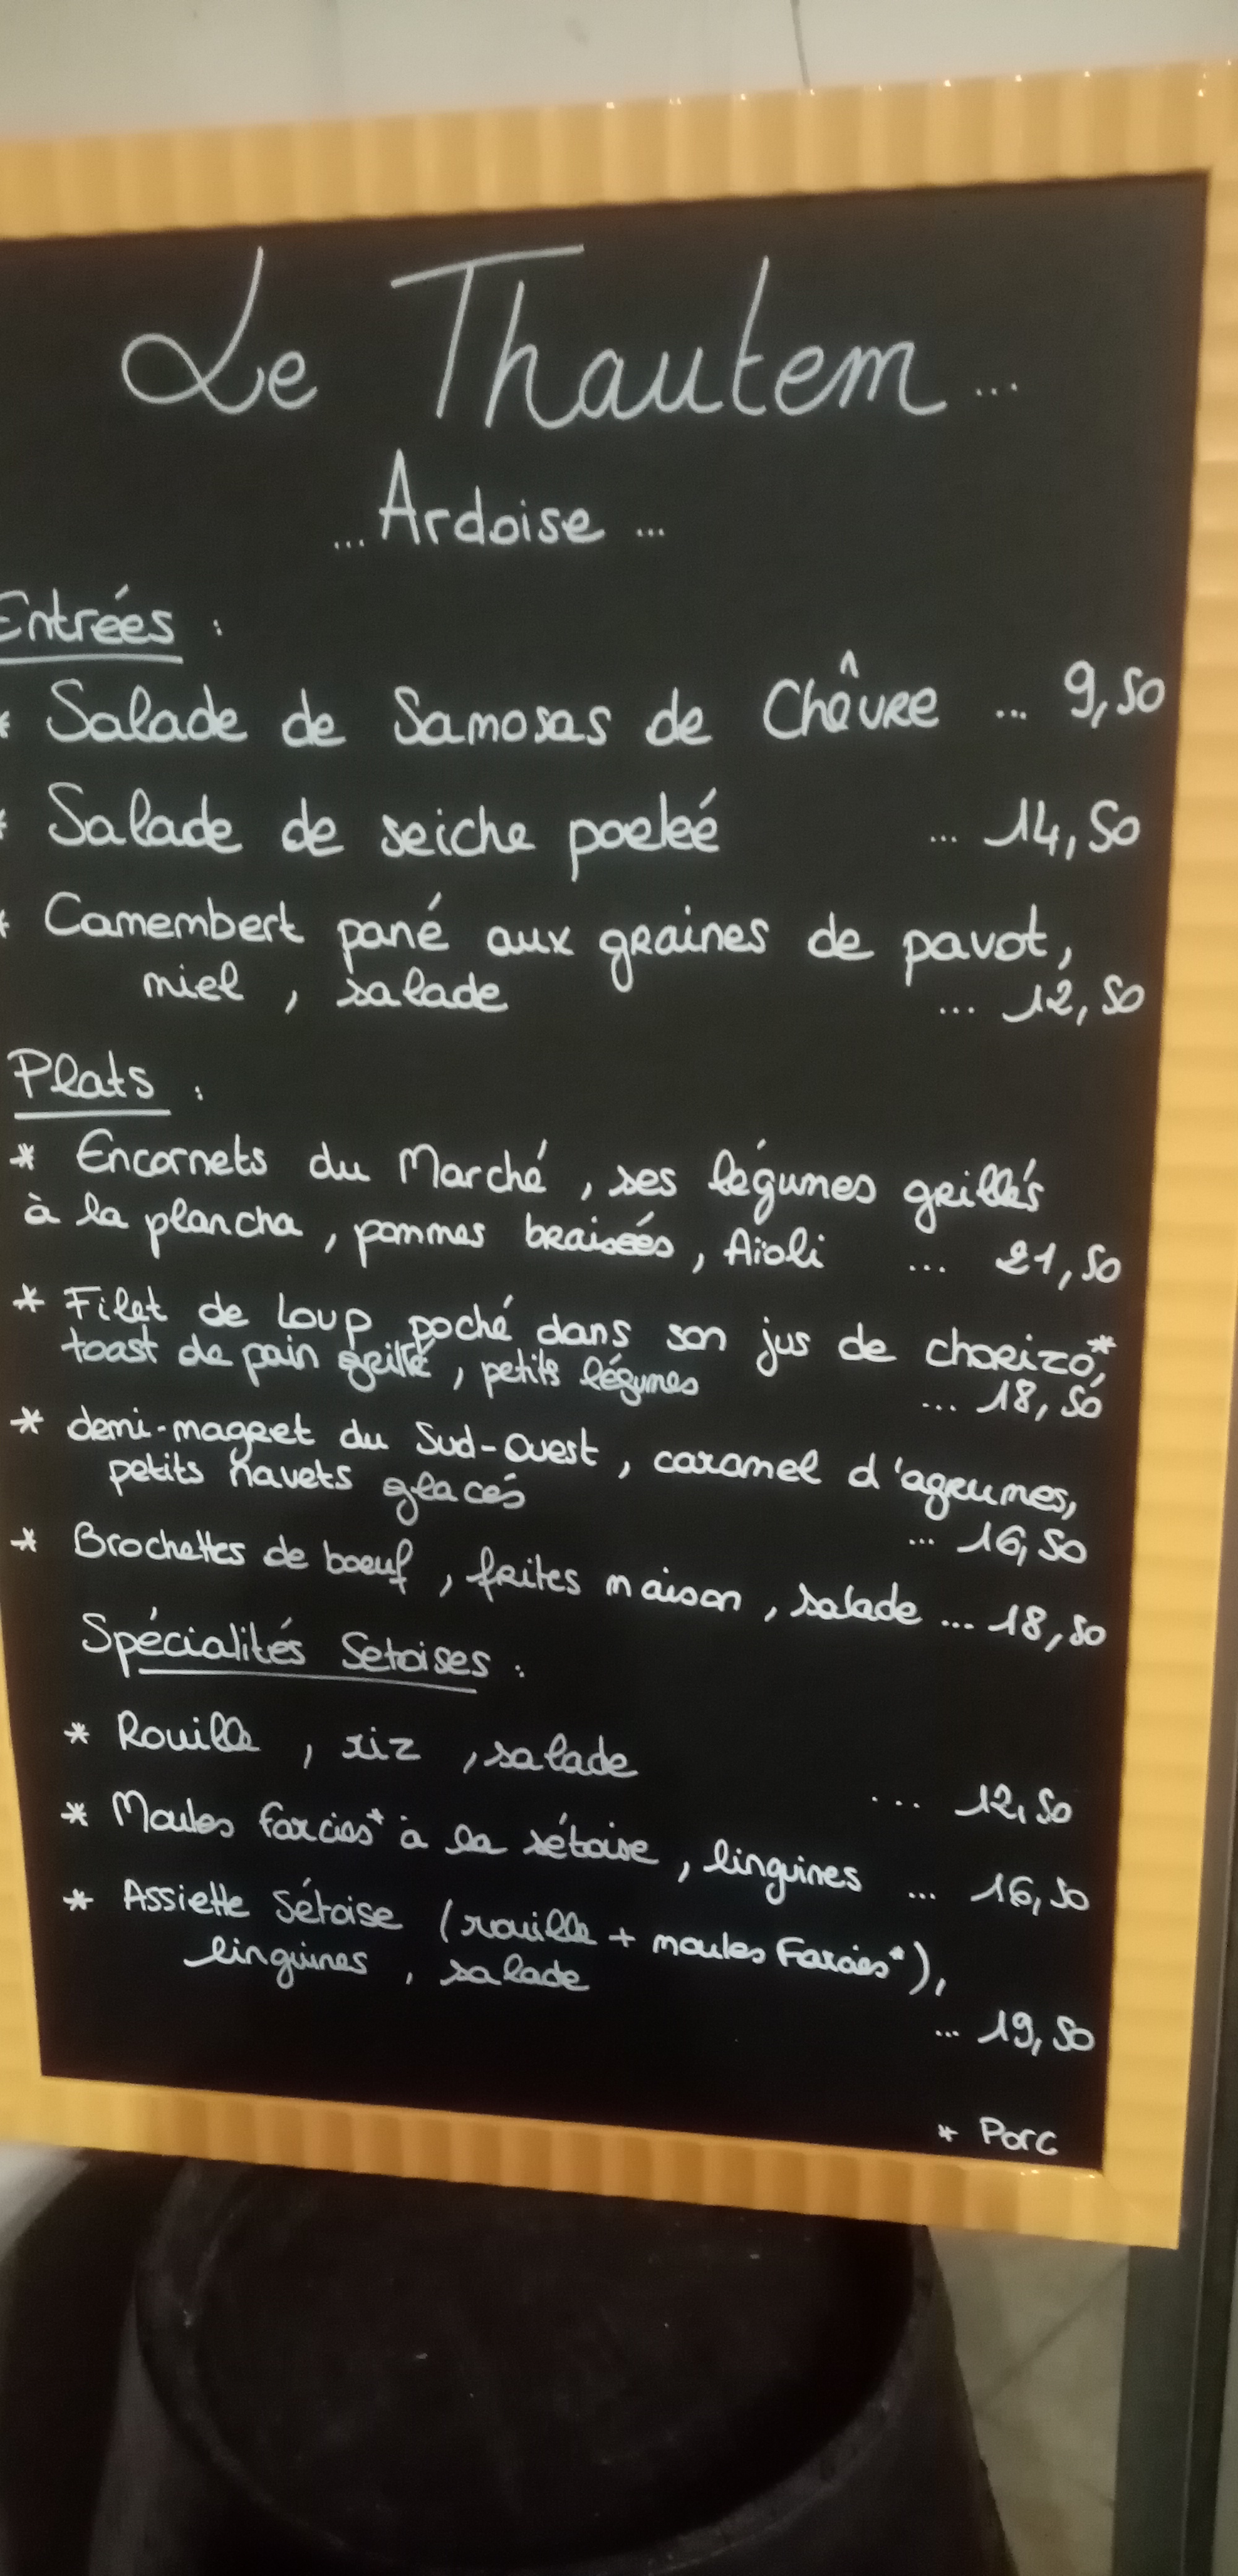 Le Thautem...
... Ardoise ...
Entrées :
* Salade de Samosas de Chêvre ... 9,50
* Salade de seiche poeleé ... 14,50
* Camembert pané aux graines de pavot,
miel, salade ... 12,50
Plats :
* Encornets du Marché, ses légumes grillés
à la plancha, pommes braisées, Aïoli ... 21,50
* Filet de Loup poché dans son jus de chorizo*,
toast de pain grillé, petits légumes ... 18,50
* demi-magret du Sud-Ouest, caramel d'agrumes,
petits navets glacés ... 16,50
* Brochettes de boeuf, frites maison, salade ... 18,50
Spécialités Setoises :
* Rouille, riz, salade ... 12,50
* Moules farcies* à la sétoise, linguines ... 16,50
* Assiette Sétoise (rouille + moules Farcies*),
linguines, salade
... 19,50
* Porc